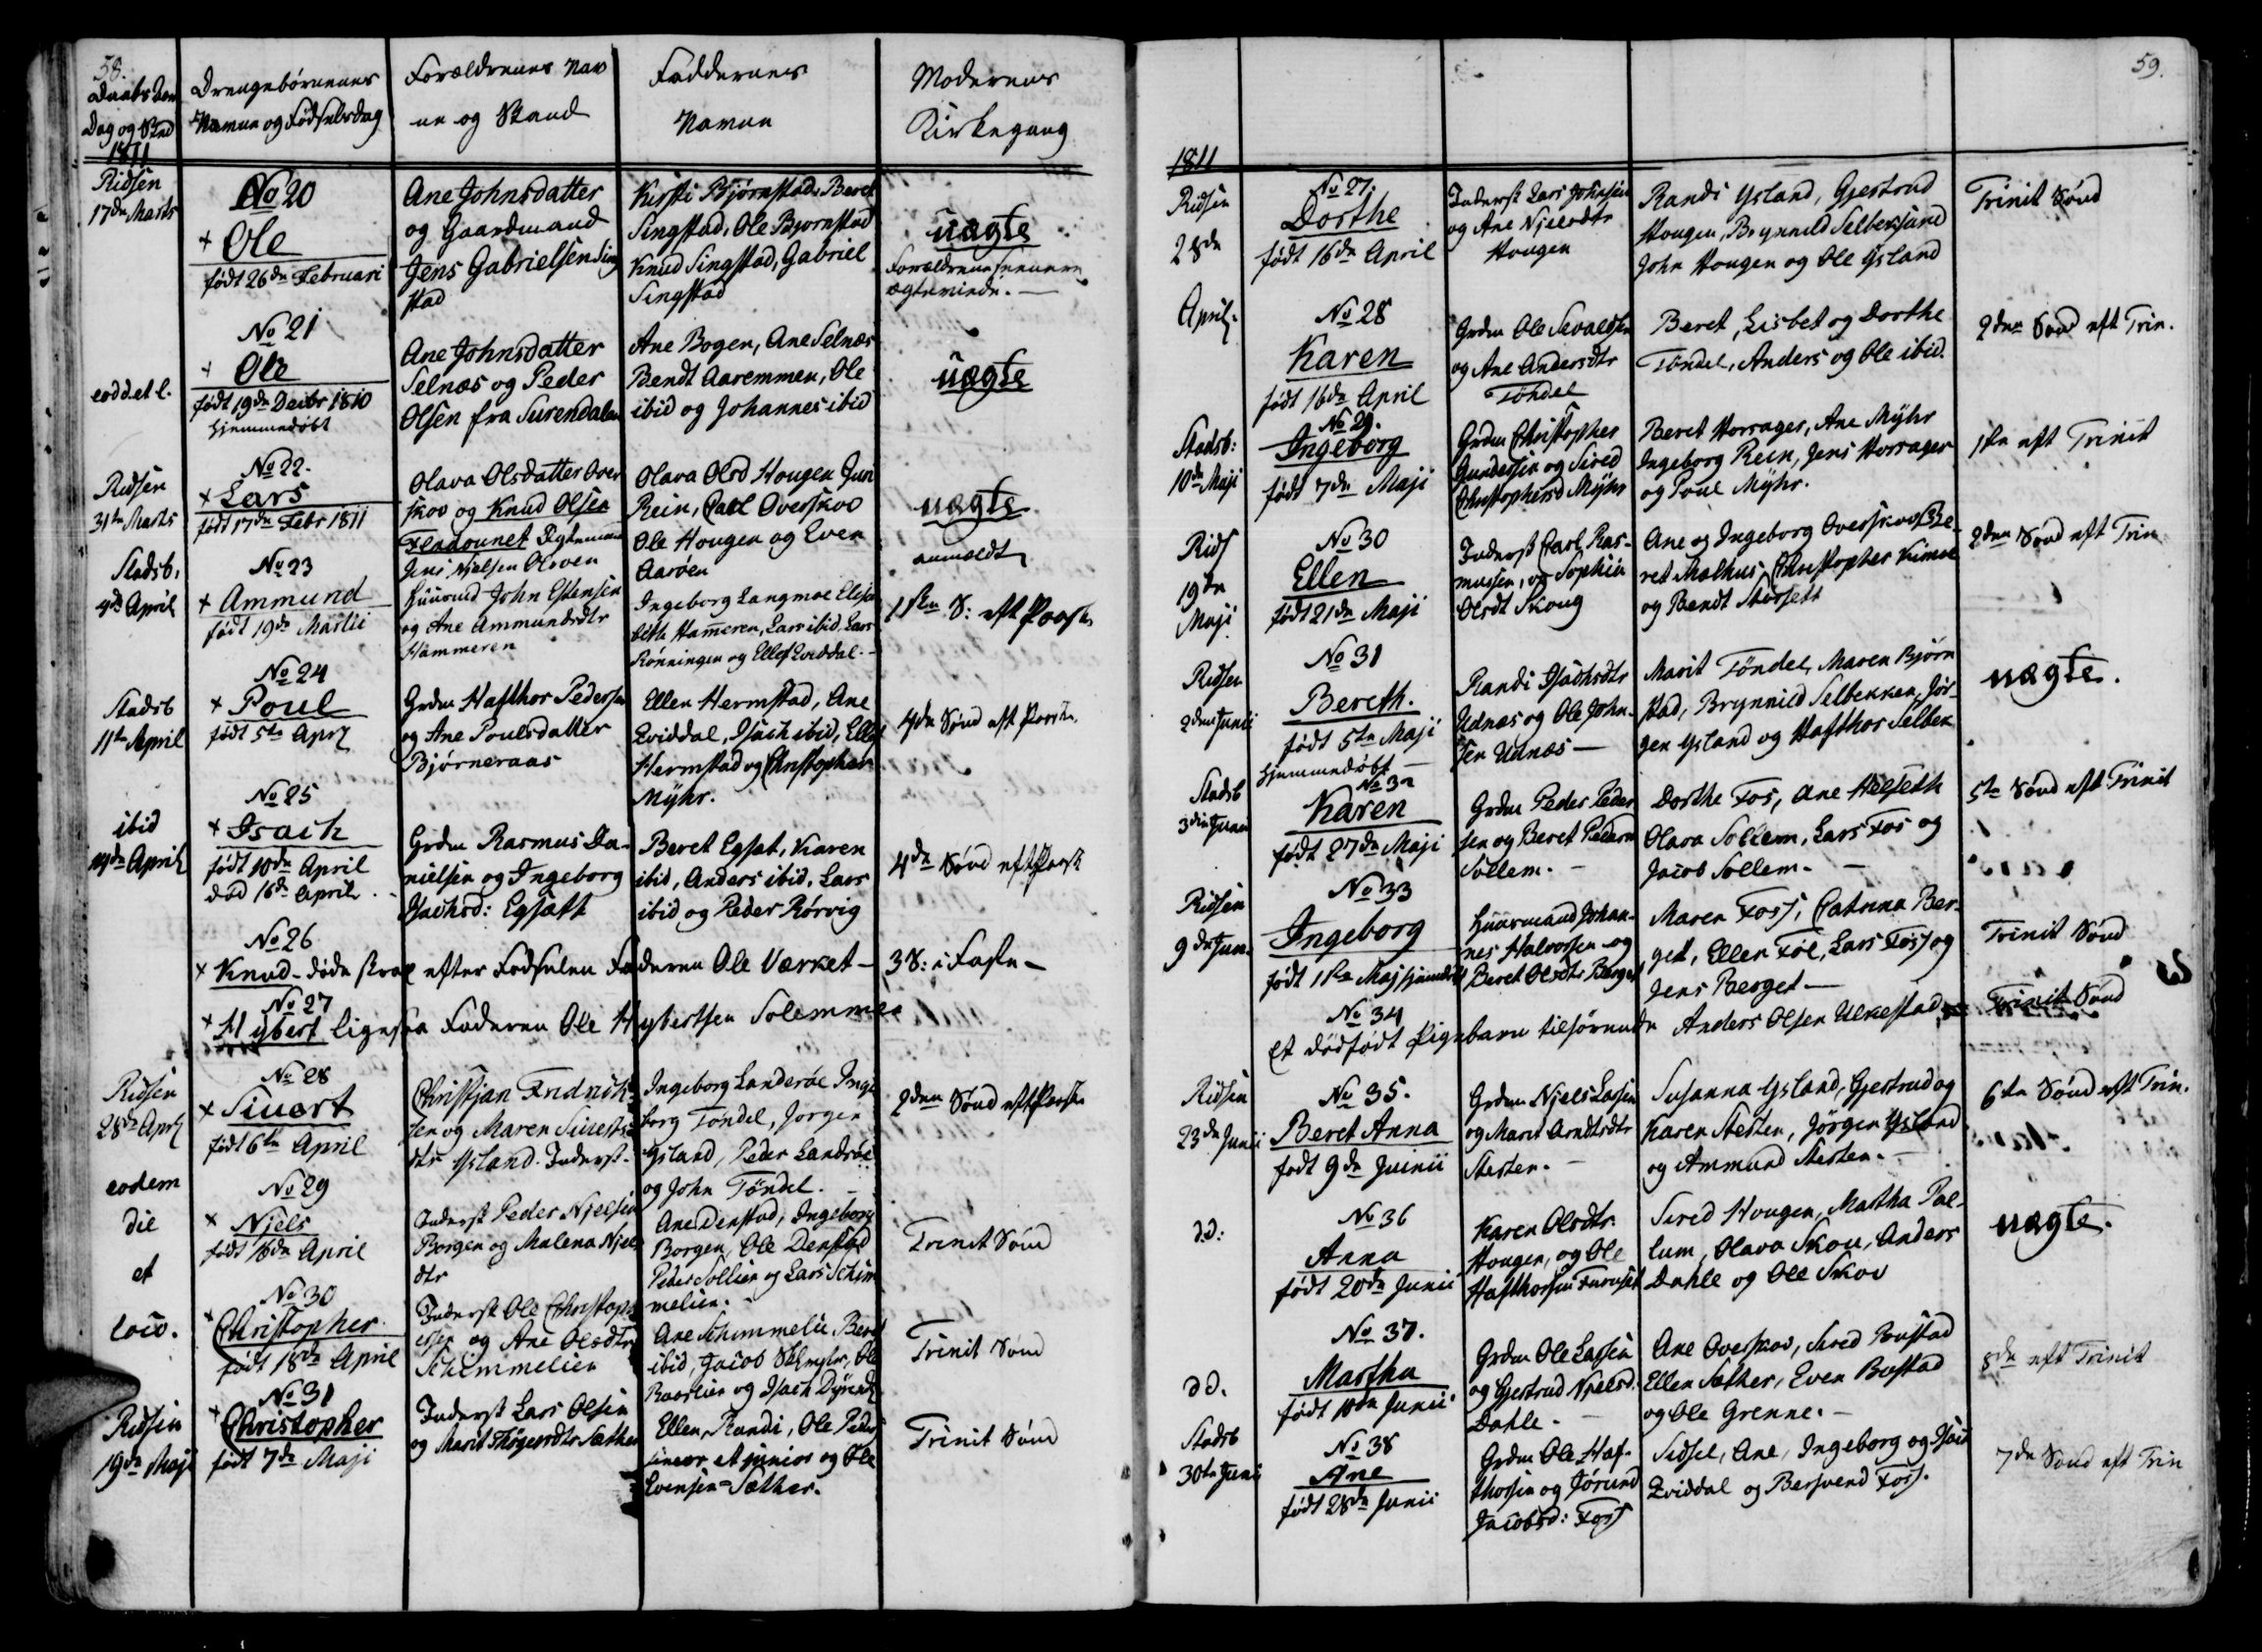 58.
Daabs
Dag og Sted
1811
Drengebørnenes
Navne og Fødselsdag
Forældrenes Nav
ne og Stand
Faddernes
Navne
Moderens
Kirkegang
Ridsen
17de Marts
No 20
+ Ole
født 26de Februari
Ane Johnsdatter
og Gaardmand
Jens Gabrielsen Sing
stad
Kirsti Bjørnstad, Beret
Singstad, Ole Bjornstad
Knud Singstad, Gabriel
Singstad
uægte
Forældrene
ægteviede.
eod. et l.
No 21
+ Ole
født 19de Decbr 1810
hjemmedøbt
Ane Johnsdatter
Selnæs og Peder
Olsen fra Surendalen
Ane Bogen, Ane Selnæs
Bendt Aaremmen, Ole
ibid og Johannes ibid
uægte
Ridsen
31te Marts
No 22.
+ Lars
født 17de Febr 1811
Olava Olsdatter Over
skov og Knud Olsen
Olava Olsd Hougen Gun
Rein, Carl Overskov
Ole Hougen og Even
Aarøen
uægte
anmeldt
Stadsb.
4de April
No 23
+ Ammund
født 19de Martii
Jens Njelsen Oloven
Huusmd John Estensen
og Ane Ammundsdtr
Hammeren
Ingeborg Langmoe Elisa
beth Hammeren, Lars ibid. Lars
Rønningen og Ellef Qviddal.
1ste S: eft Paask
Stadsb
11te April
No 24
+ Poul
født 5te April
Grdm Hafthor Pedersen
og Ane Poulsdatter
Bjørneraas
Ellen Hermstad, Ane
Qviddal, Isach ibid, Ellef
Hermstad og Christopher
Mÿhr.
4de Sønd eft Paaske
ibid
April
No 25
+ Isach
født 10de April
død 16de April
Grdm Rasmus Da-
nielsen og Ingeborg
Isachsd: Egsætt
Beret Egsæt, Karen
ibid, Anders ibid, Lars
ibid og Peder Rørvig
4de Sønd eft Paask
No 26
+ Knud - døde strax efter Fødselen Faderen Ole Værket - 3 S: i Faste -
No 27
+ Hybert ligesaa Faderen Ole Hybertsen Solemme
Ridsen
28de April
No 28
+ Siuert
født 6te April
Christjan Fridrich-
sen og Maren Siuerts-
dtr Ysland. Inderst.
Ingeborg Landsrøe Inge
borg Tøndel, Jørgen
Ysland, Peder Landsrøe
og John Tøndel.
2den Sønd eft Paaske
eodem
die
et
loco.
No 29
+ Njels
født 16de April
Inderst Peder Njelsen
Borgen og Malena Njels
dtr
Ane Denstad, Ingeborg
Borgen, Ole Denstad
Peder Sollien og Lars Schim
melien.
Trinit Sønd
No 30
+ Christopher
født 18de April
Inderst Ole Christoph
ersen og Ane Olsdtr
Schimmelien
Ane Schimmelie, Beret
ibid, Jacob, Ole
Baarlien og Isach
Trinit Sønd
Ridsen
19de Maji
No 31
+ Christopher
født 7de Maji
Inderst Lars Olsen
og Marit Thøgersdtr Sæther
Ellen, Randi, Ole Peder
sineor et junior og Ole
Evensen Sæther.
Trinit Sønd
59.
1811
Ridsen
28de
April.
No 27.
Dorthe
født 16de April
Inderst Lars Johnsen
og Ane Njelsdtr
Hougen
Randi Ysland, Gjertrud
Hougen, Brynnild
John Hougen og Ole Ysland
Trinit Sønd
No 28
Karen
født 16de April
Grdm Ole Sevaldsen
og Ane Andersdtr
Tøndel
Beret, Lisbet og Dorthe
Tøndel, Anders og Ole ibid.
2den Sønd eft Trin.
Stadsb:
10de Maji
No 29.
Ingeborg
født 7de Maji
Grdm Christopher
Gundersen og Sired
Christophersd Mÿhr
Beret Horrager, Ane Mÿhr
Ingeborg Rein, Jens Horrager
og Poul Mÿhr.
1ste eft Trinit
Rids
19de
Maji
No 30
Ellen
født 21de Maji
Inderst Carl Ras-
mussen, og Sophia
Olsdt Skoug
Ane og Ingeborg Overskov Be-
ret Melhus, Christopher Kimoe
og Bendt Storsett
2den Sønd eft Trin
Ridsen
2den Junii
No 31
Bereth.
født 5te Maji
hjemmedøbt
Randi Isachsdtr
Udnæs og Ole John-
sen Udnæs -
Marit Tøndel, Maren Bjørn
stad, Brynnild Selbekken, Jør-
gen Ysland og Hafthor Selbek
uægte.
Stadsb
3die Junii
No 32
Karen
født 27de Maji
Grdm Peder Peder
sen og Beret Pedersd
Sollem.
Dorthe Fos, Ane Helseth
Olava Sollem, Lars Fos og
Jacob Sollem.
5te Sønd eft Trinit
Ridsen
9de Jun.
No 33
Ingeborg
født 1ste Maj hjemdøbt
Huusmand Johan-
nes Halvorsen og
Beret Olsdtr Berget
Maren Foss, Catrina Ber-
get, Ellen Føe, Lars Foss og
Jens Berget -
Trinit Sønd
No 34
Et dødfødt Pigebarn tilhørende Anders Olsen Ulkestad
Trinit Sønd
Ridsen
23de Junii
No 35.
Beret Anna
født 9de Junii
Grdm Njels Larsen
og Marit Arndtsdtr
Hesten.
Susanna Ysland, Gjertrud og
Karen Hesten, Jørgen Ysland
og Ammund Hesten.
6te Sønd eft Trin.
d.d:
No 36
Anna
født 20de Junii
Karen Olsdtr
Hougen, og Ole
Hafthorsen Furuset
Sired Hougen, Martha Pal-
lum, Olava Skou, Anders
Dahle og Ole Skov
uægte.
d.d.
No 37.
Martha
født 10de Junii
Grdm Ole Larsen
og Gjertrud Njelsd.
Dahle.
Ane Overskov, Sired Bustad
Ellen Sæther, Even Bustad
og Ole Grenne.
8de eft Trinit
Stadsb
30te Junii
No 38
Ane
født 28de Junii
Grdm Ole Haf-
thorsen og Jørund
Jacobsd: Foss
Sidsel, Ane, Ingeborg og Isach
Qviddal og Bersvend Foss.
7de Sønd eft Trin